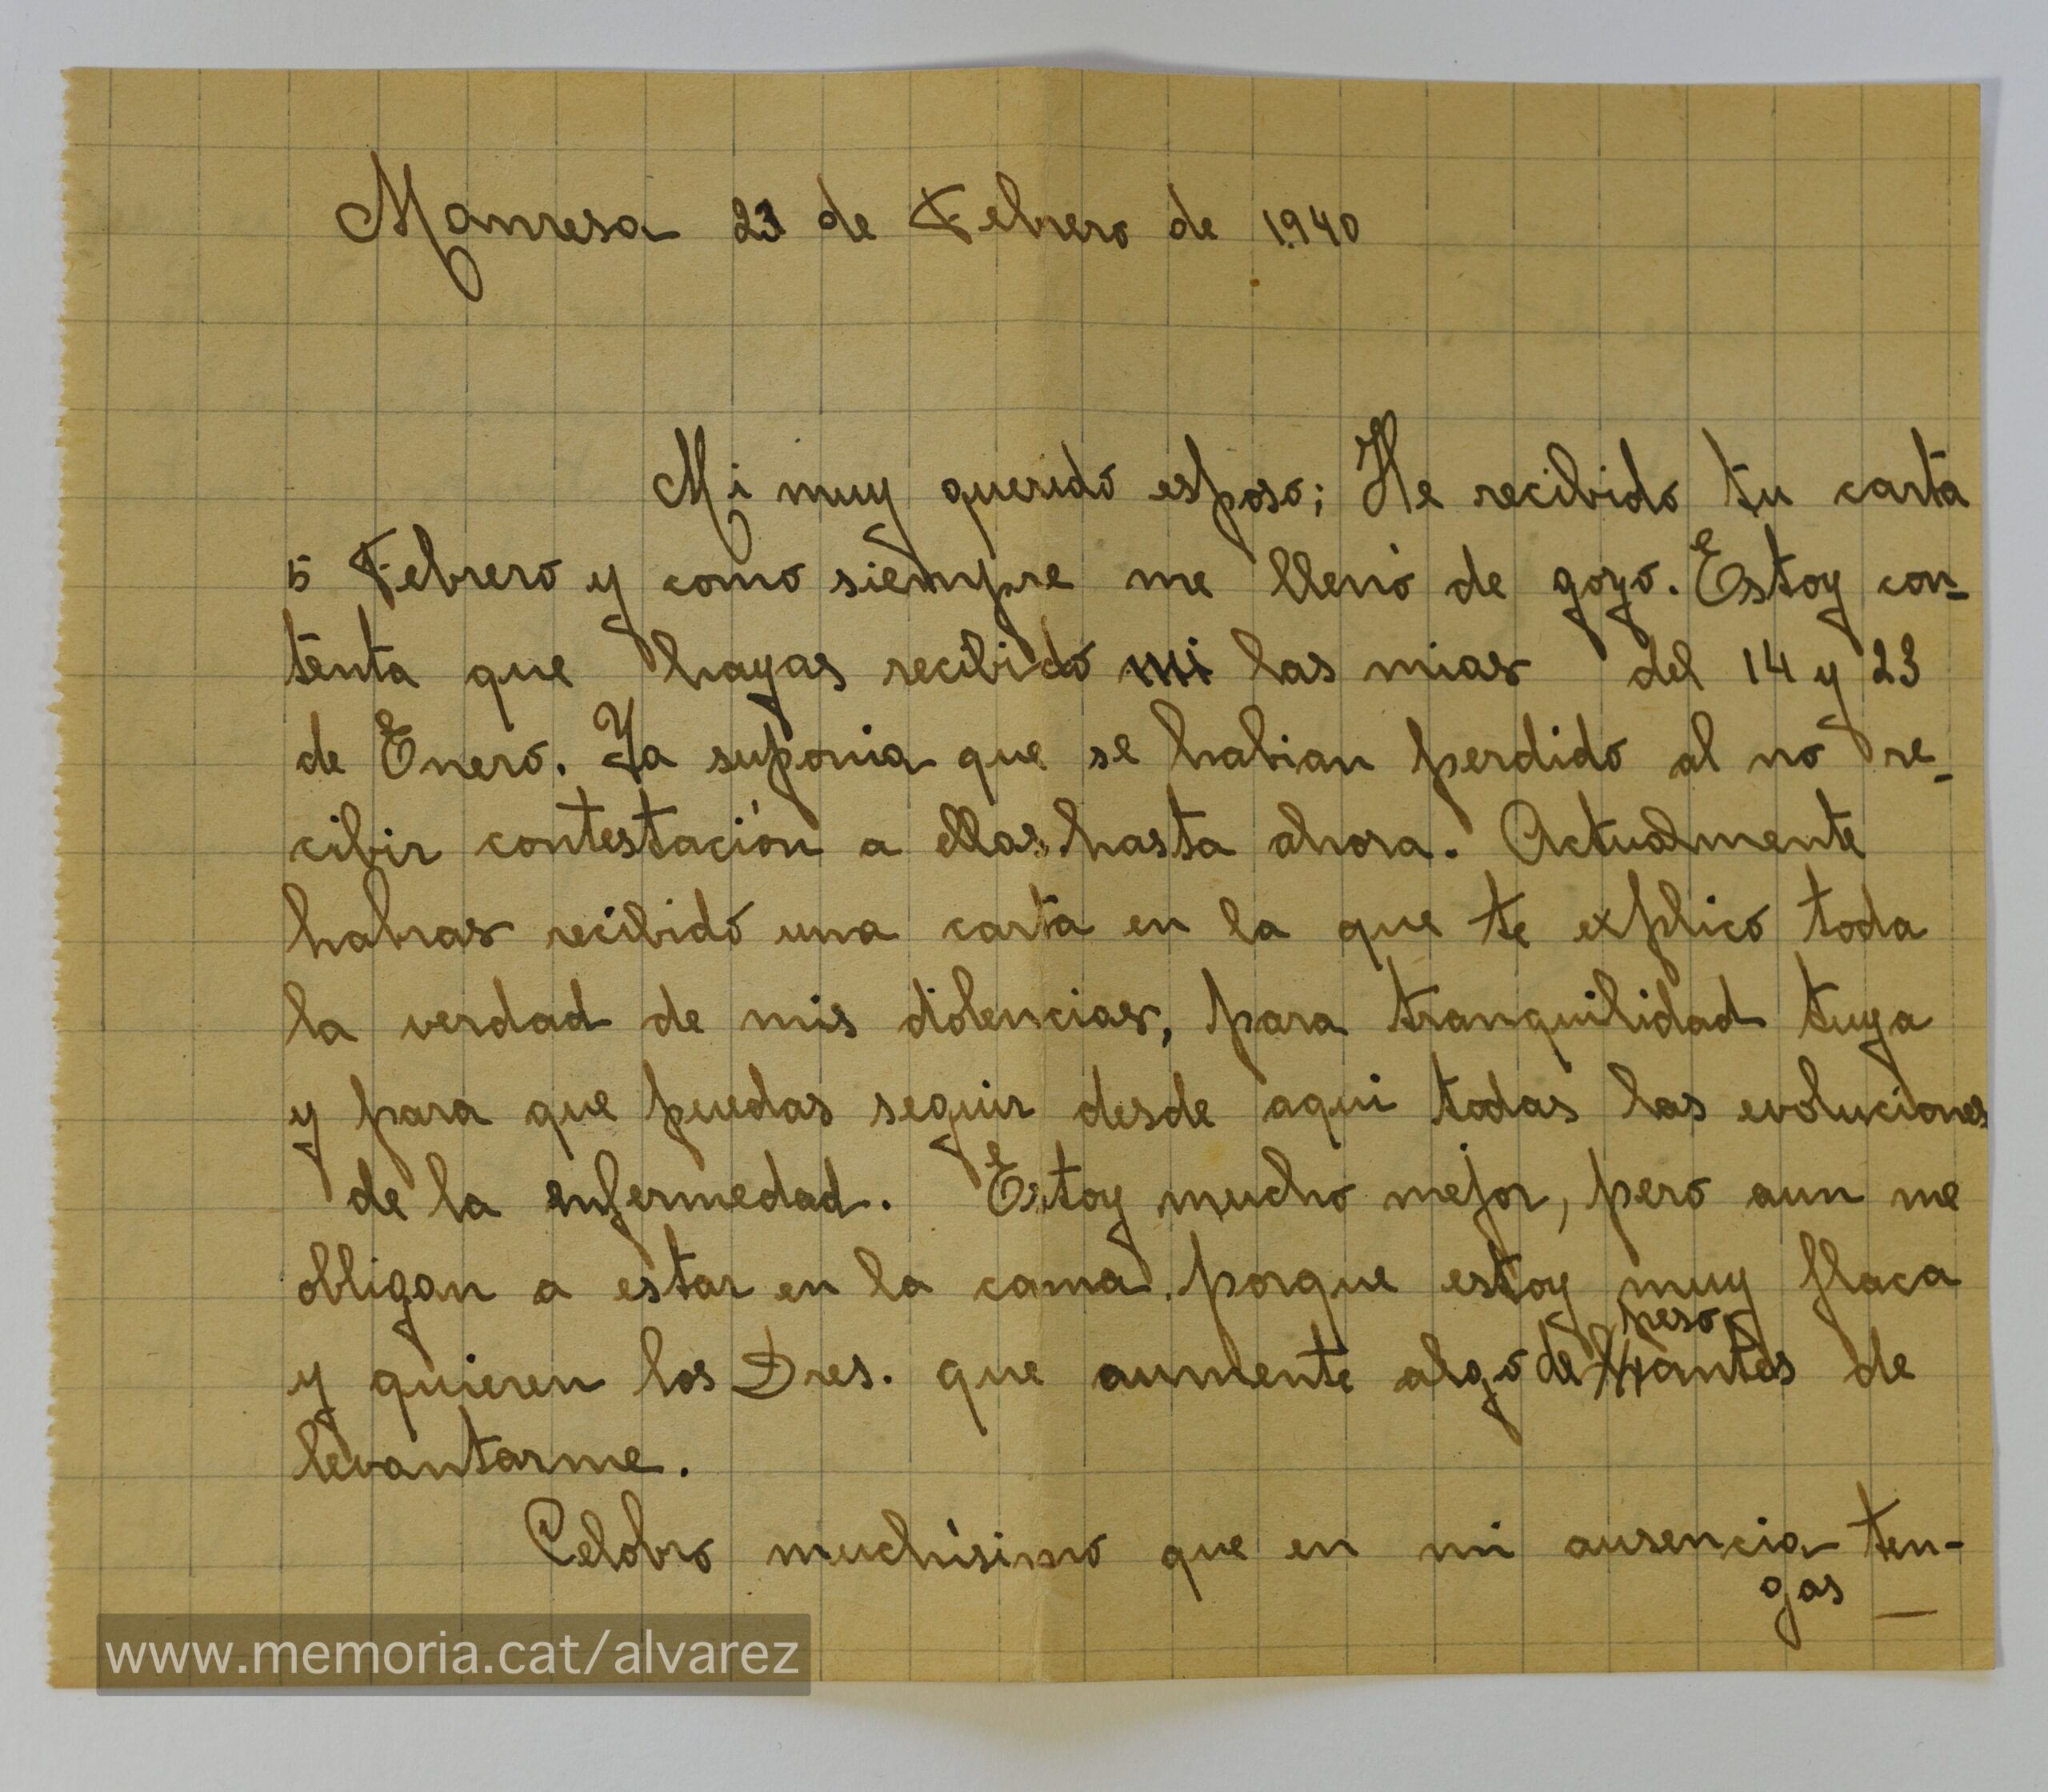 Manresa 23 de Febrero de 1940
Mi muy querido esposo; He recibido tu carta
5 Febrero y como siempre me llenó de gozo. Estoy con-
tenta que hayas recibido mi las mias del 14 y 23
de Enero. Ya suponia que se habian perdido al no re-
cibir contestación a ellas hasta ahora. Actualmente
habras recibido una carta en la que te explico toda
la verdad de mis dolencias, para tranquilidad tuya
y para que puedas seguir desde aqui todas las evoluciones
de la enfermedad. Estoy mucho mejor, pero aun me
obligan a estar en la cama porque estoy muy flaca
y quieren los Dres. que aumente algo de peso antes de
levantarme.
Celobro muchísimo que en mi ausencia ten-
gas
www.memoria.cat/alvarez